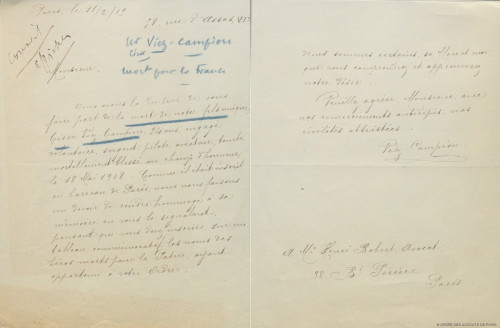 Paris, le 11/2/19
78, rue d'Assas, VIe
Conseil
afficher
Mr Viez-Campion
mort pour la France
Monsieur,
Nous avons la douleur de vous
faire part de la mort de notre fils unique
Viez Campion, 23 ans, engagé
volontaire, sergent pilote aviateur, tombé
mortellement blessé au champ d'honneur,
le 18 Mai 1918. Comme il était inscrit
au barreau de Paris, nous nous faisons
un devoir de rendre hommage à sa
mémoire en vous le signalant,
pensant que vous devez inscrire sur un
tableau commémoratif les noms des
héros morts pour la Patrie, ayant
appartenu à votre Ordre.
Nous sommes certains, Monsieur
que vous comprendrez et approuverez
notre désir.
Veuillez agréer Monsieur, avec
nos remerciements anticipés, nos
civilités attristées.
Viez Campion
à Me Henri Robert Avocat
Bd Pereire
Paris
© ORDRE DES AVOCATS DE PARIS